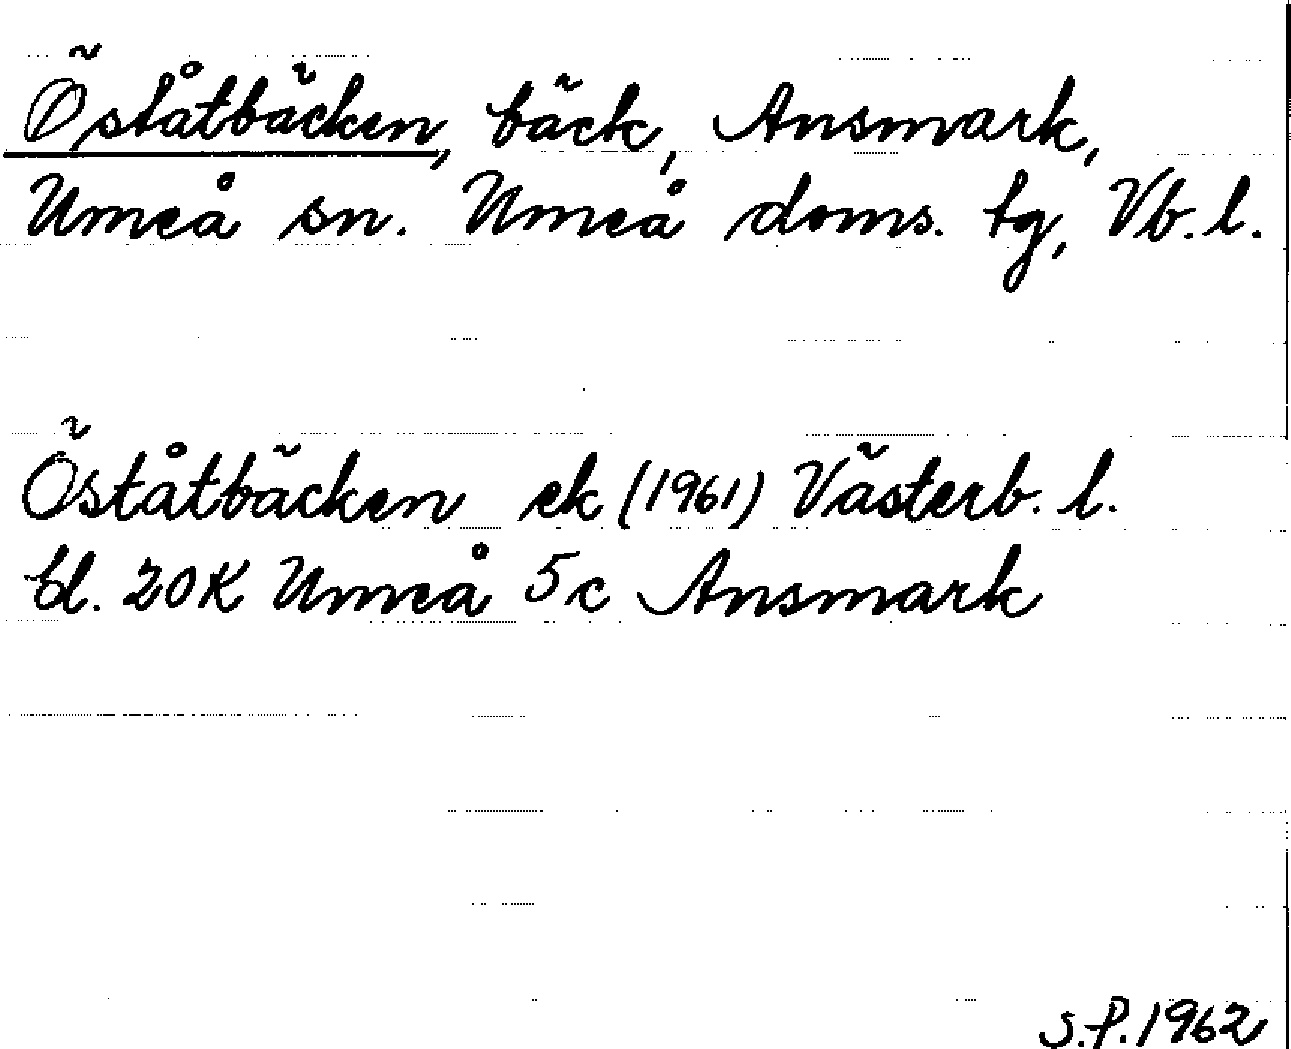 Öståtbäcken, bäck, Ansmark,
Umeå sn. Umeå doms. tg, Vb. l.
Öståtbäcken ek (1961) Västerb. l.
bl. 20K Umeå 5c Ansmark
S.P. 1962